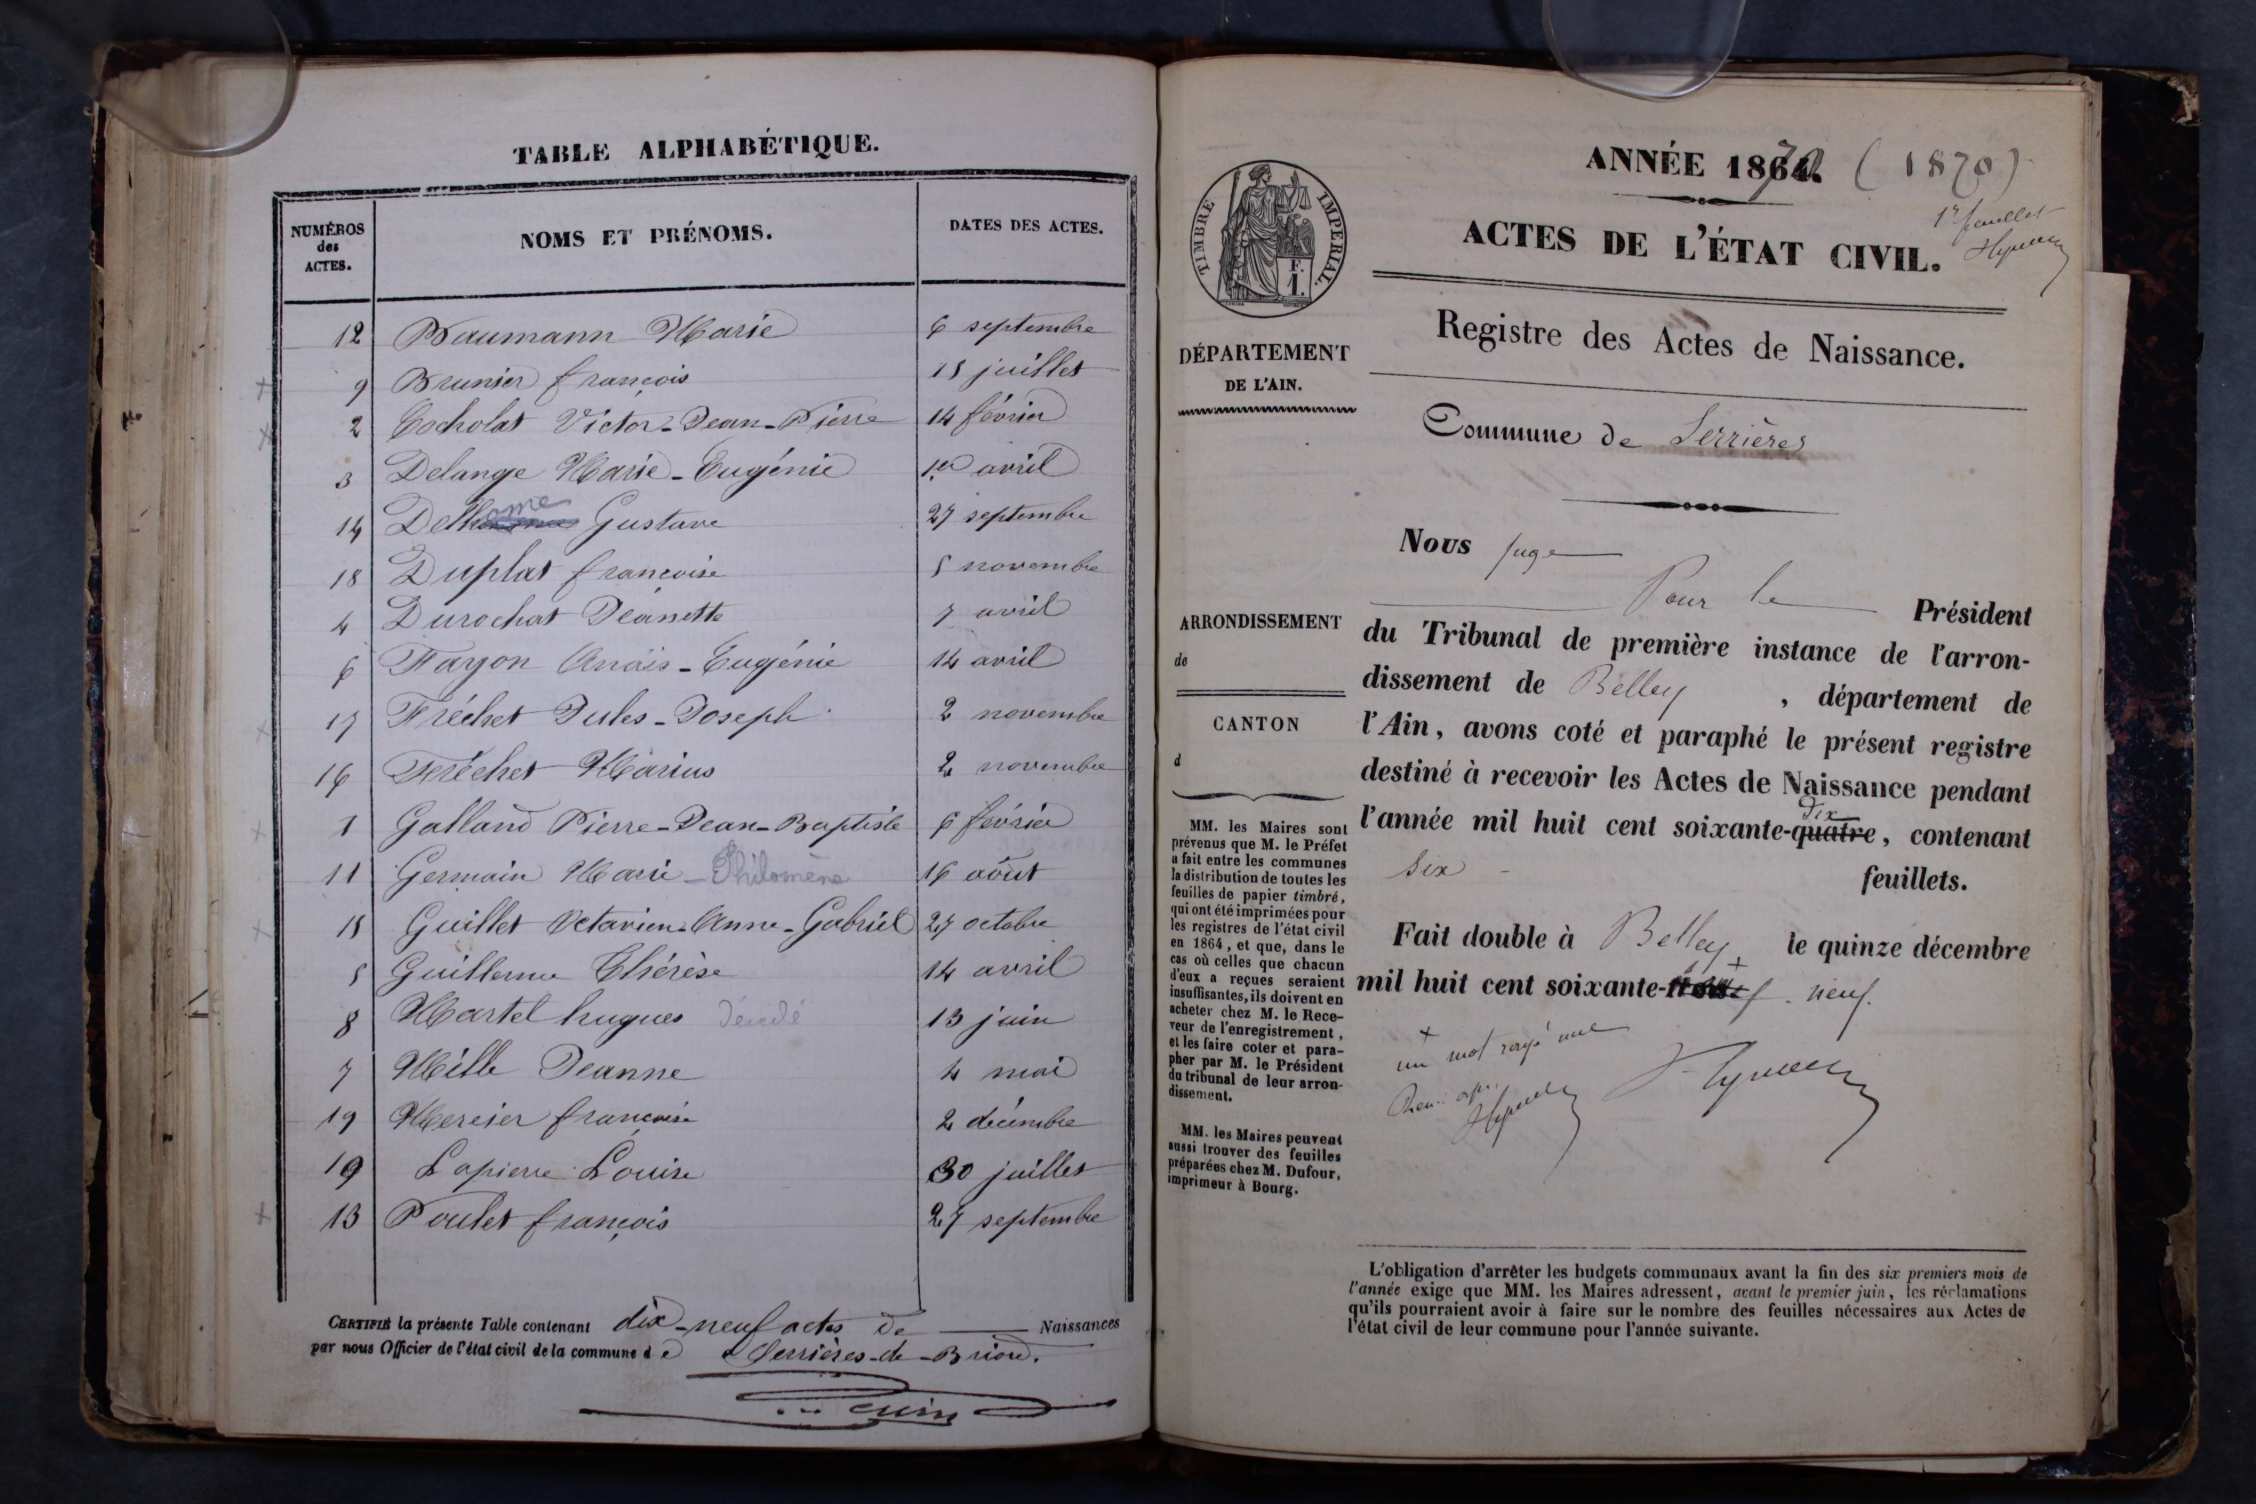 TABLE ALPHABÉTIQUE.
NUMÉROS des ACTES. NOMS ET PRÉNOMS. DATES DES ACTES.
12 Baumann Marie 6 septembre
9 Brunier françois 15 juillet
2 Cocholat Victor-Jean-Pierre 14 février
3 Delange Marie-Eugénie 1er avril
14 Delhome Gustave 27 septembre
18 Duplat françoise 5 novembre
4 Durochat Jeanette 7 avril
6 Fayon Anaïs-Eugénie 14 avril
17 Fréchet Jules-Joseph 2 novembre
16 Fréchet Marius 2 novembre
1 Galland Pierre-Jean-Baptiste 6 février
11 Germain Marie-Philomène 16 août
15 Guillet Octavien-Anne-Gabriel 27 octobre
5 Guillerme Thérèse 14 avril
8 Martel hugues Décédé 13 juin
7 Mille Jeanne 4 mai
19 Mercier françoise 2 décembre
10 Lapierre Louise 30 juillet
13 Poulet françois 27 septembre
CERTIFIÉ la présente Table contenant dix-neuf actes de Naissances
par nous Officier de l'état civil de la commune de Serrières-de-Briord.
ANNÉE 1864. 70 (1870)
1er feuillet
ACTES DE L'ÉTAT CIVIL.
TIMBRE IMPÉRIAL.
F.
1.
Registre des Actes de Naissance.
DÉPARTEMENT
DE L'AIN.
Commune de Serrières
Nous juge
Pour le Président
ARRONDISSEMENT
de
CANTON
d
du Tribunal de première instance de l'arron-
dissement de Belley , département de
l'Ain, avons coté et paraphé le présent registre
destiné à recevoir les Actes de Naissance pendant
dix
l'année mil huit cent soixante-quatre, contenant
six feuillets.
Fait double à Belley le quinze décembre
mil huit cent soixante- neuf.
+
un mot rayé nul
MM. les Maires sont
prévenus que M. le Préfet
a fait entre les communes
la distribution de toutes les
feuilles de papier timbré,
qui ont été imprimées pour
les registres de l'état civil
en 1864, et que, dans le
cas où celles que chacun
d'eux a reçues seraient
insuffisantes, ils doivent en
acheter chez M. le Rece-
veur de l'enregistrement,
et les faire coter et para-
pher par M. le Président
du tribunal de leur arron-
dissement.
MM. les Maires peuvent
aussi trouver des feuilles
préparées chez M. Dufour,
imprimeur à Bourg.
L'obligation d'arrêter les budgets communaux avant la fin des six premiers mois de
l'année exige que MM. les Maires adressent, avant le premier juin, les réclamations
qu'ils pourraient avoir à faire sur le nombre des feuilles nécessaires aux Actes de
l'état civil de leur commune pour l'année suivante.